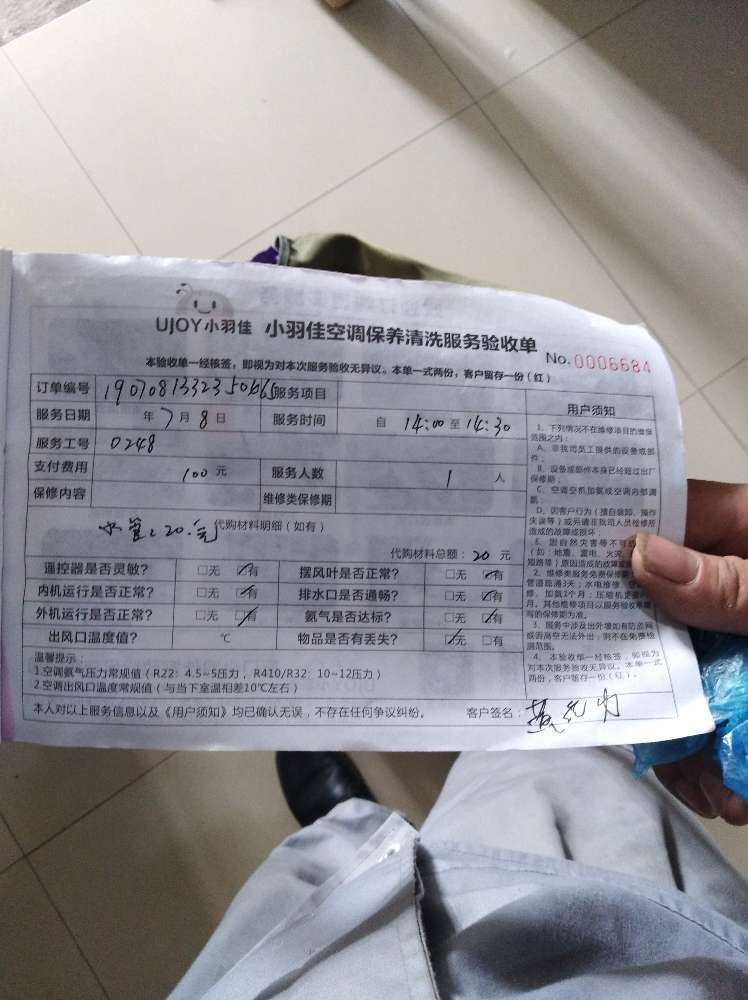 UJOY小羽佳 小羽佳空调保养清洗服务验收单
No. 0006684
本验收单一经核签，即视为对本次服务验收无异议。本单一式两份，客户留存一份（红）
订单编号 服务项目
服务日期 年 7 月 8 日 服务时间 自 14:00 至 14:30
服务工号 0248
支付费用 100 元 服务人数 1 人
保修内容 维修类保修期
水管 20.元 代购材料明细（如有）
代购材料总额：20 元
遥控器是否灵敏？ □无 □有 摆风叶是否正常？ □无 □有
内机运行是否正常？ □无 □有 排水口是否通畅？ □无 □有
外机运行是否正常？ □无 □有 氨气是否达标？ □无 □有
出风口温度值？ ℃ 物品是否有丢失？ □无 □有
温馨提示：
1.空调氨气压力常规值（R22：4.5~5压力，R410/R32：10~12压力）
2.空调出风口温度常规值（与当下室温相差10℃左右）
本人对以上服务信息以及《用户须知》均已确认无误，不存在任何争议纠纷。 客户签名：
用户须知
1、下列情况不在维修项目的维保
范围之内：
A、非我司员工提供的设备或部
件；
B、设备或部件本身已经超过出厂
保修期；
C、空调空机加氨或空调内部漏
氨；
D、因客户行为（擅自装卸、操作
失误等）或另请非我司人员检修所
造成的故障或损坏；
E、因自然灾害等不可
（如：地震、雷电、火灾、
短路等）原因造成的故障或
2、维修类服务免费保修
管道疏通3天；水电维修、
修、加氨1个月；压缩机更换
月。其他维修项目以服务验收单
写的保修期为准。
3、服务中涉及出外墙如有防盗网
或因高空无法外出，则不在免费检
测范围。
4、本验收单一经核签，即视为
对本次服务验收无异议。本单一式
两份，客户留存一份（红）。